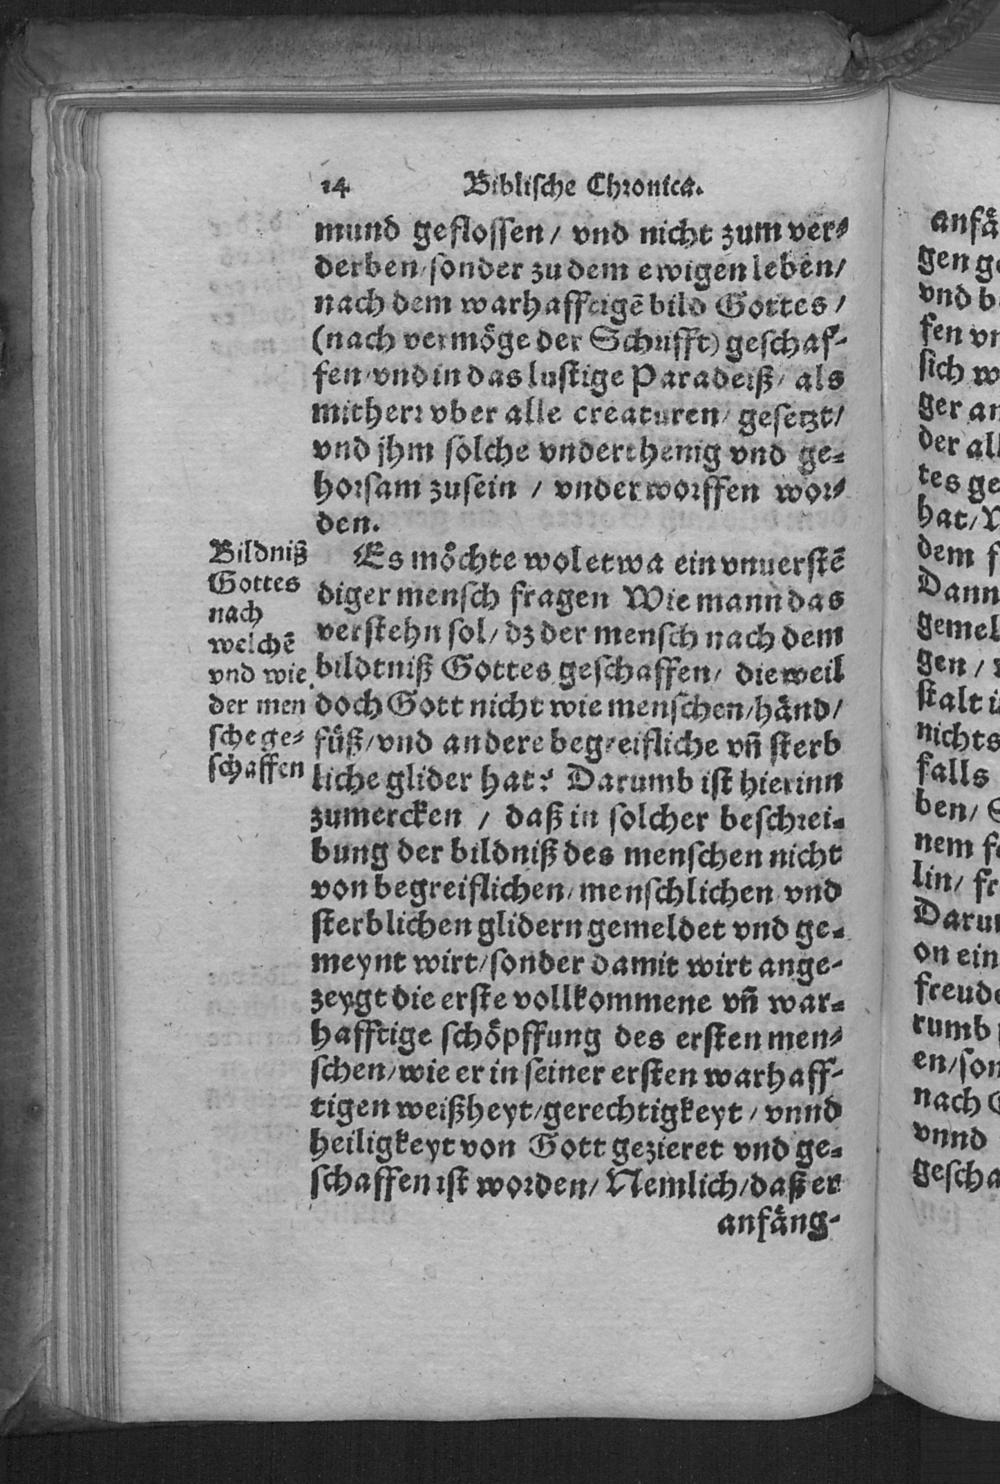 14 Biblische Chronica.
mund geflossen / vnd nicht zum ver⸗
derben / sonder zu dem ewigen leben /
nach dem warhafftigē bild Gottes /
(nach vermöge der Schrifft) geschaf⸗
fen / vnd in das lustige Paradeiß / als
mitherr vber alle creaturen / gesetzt /
vnd jhm solche vnderthenig vnd ge⸗
horsam zusein / vnderworffen wor⸗
den.
Bildniß
Gottes
nach
welchē
vnd wie
der men
sche ge⸗
schaffen
Es möchte wol etwa ein vnuerstē
diger mensch fragen Wie mann das
verstehn sol / dz der mensch nach dem
bildtniß Gottes geschaffen / dieweil
doch Gott nicht wie menschen / händ /
füß / vnd andere begreifliche vn̄ sterb
liche glider hat? Darumb ist hierinn
zumercken / daß in solcher beschrei⸗
bung der bildniß des menschen nicht
von begreiflichen / menschlichen vnd
sterblichen glidern gemeldet vnd ge⸗
meynt wirt / sonder damit wirt ange⸗
zeygt die erste vollkommene vn̄ war⸗
hafftige schöpffung des ersten men⸗
schen / wie er in seiner ersten warhaff⸗
tigen weißheyt / gerechtigkeyt / vnnd
heiligkeyt von Gott gezieret vnd ge⸗
schaffen ist worden / Nemlich / daß er
anfäng⸗
anfä
gen g
vnd b
fen vn
sich w
ger an
der all
tes ge
hat /
dem f
Dann
gemel
gen /
stalt
nichts
falls
ben /
nem f
lin / fr
Daru
on ein
freude
rumb
en / son
nach G
vnnd
gescha